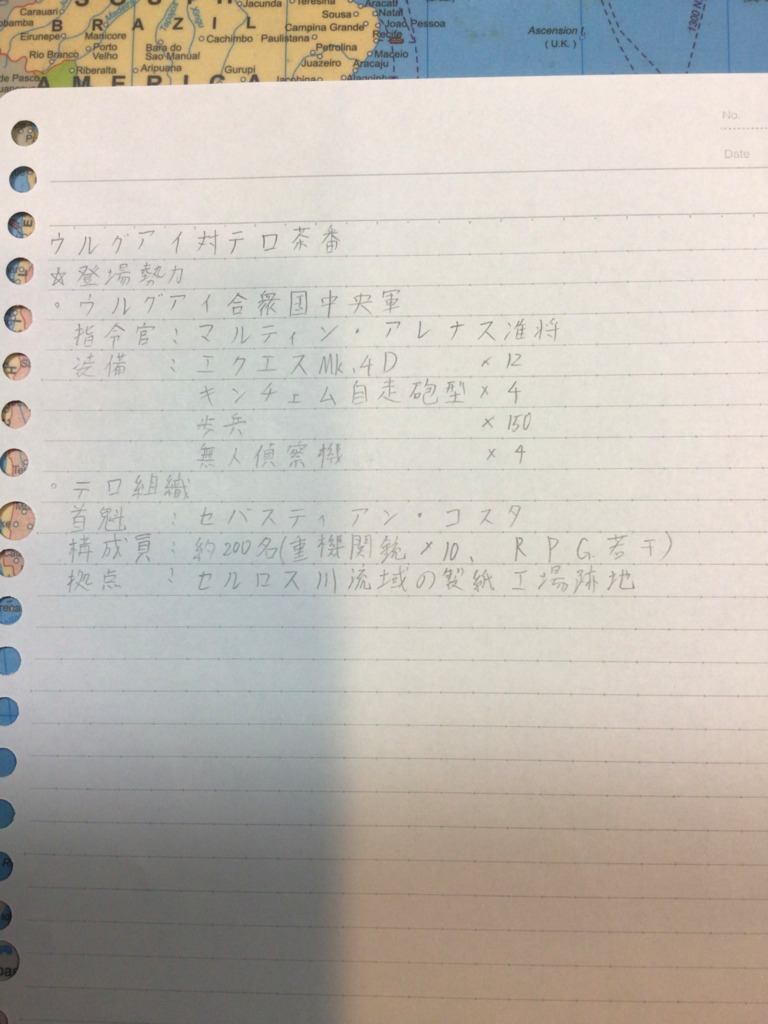 Carauari
Eirunepe
Rio Branco
Riberalta
Manicore
Porto
Velho
Aripuana
Barra do
Sao Manual
Cachimbo
Gurupi
BRAZIL
AMERICA
Jacunda
Teresina
Sousa
Campina Grande
Paulistana
Petrolina
Juazeiro
Aracati
Natal
Joao Pessoa
Recife
Maceio
Aracaju
Ascension I.
(U.K.)
No.
Date
ウルグアイ対テロ茶番
☆登場勢力
。ウルグアイ合衆国中央軍
指令官：マルティン・アレナス准将
装備：エクエスMk.4D ×12
キンチェム自走砲型×4
歩兵 ×150
無人偵察機 ×4
。テロ組織
首魁：セバスティアン・コスタ
構成員：約200名(重機関銃×10、RPG若干)
拠点：セルロス川流域の製紙工場跡地